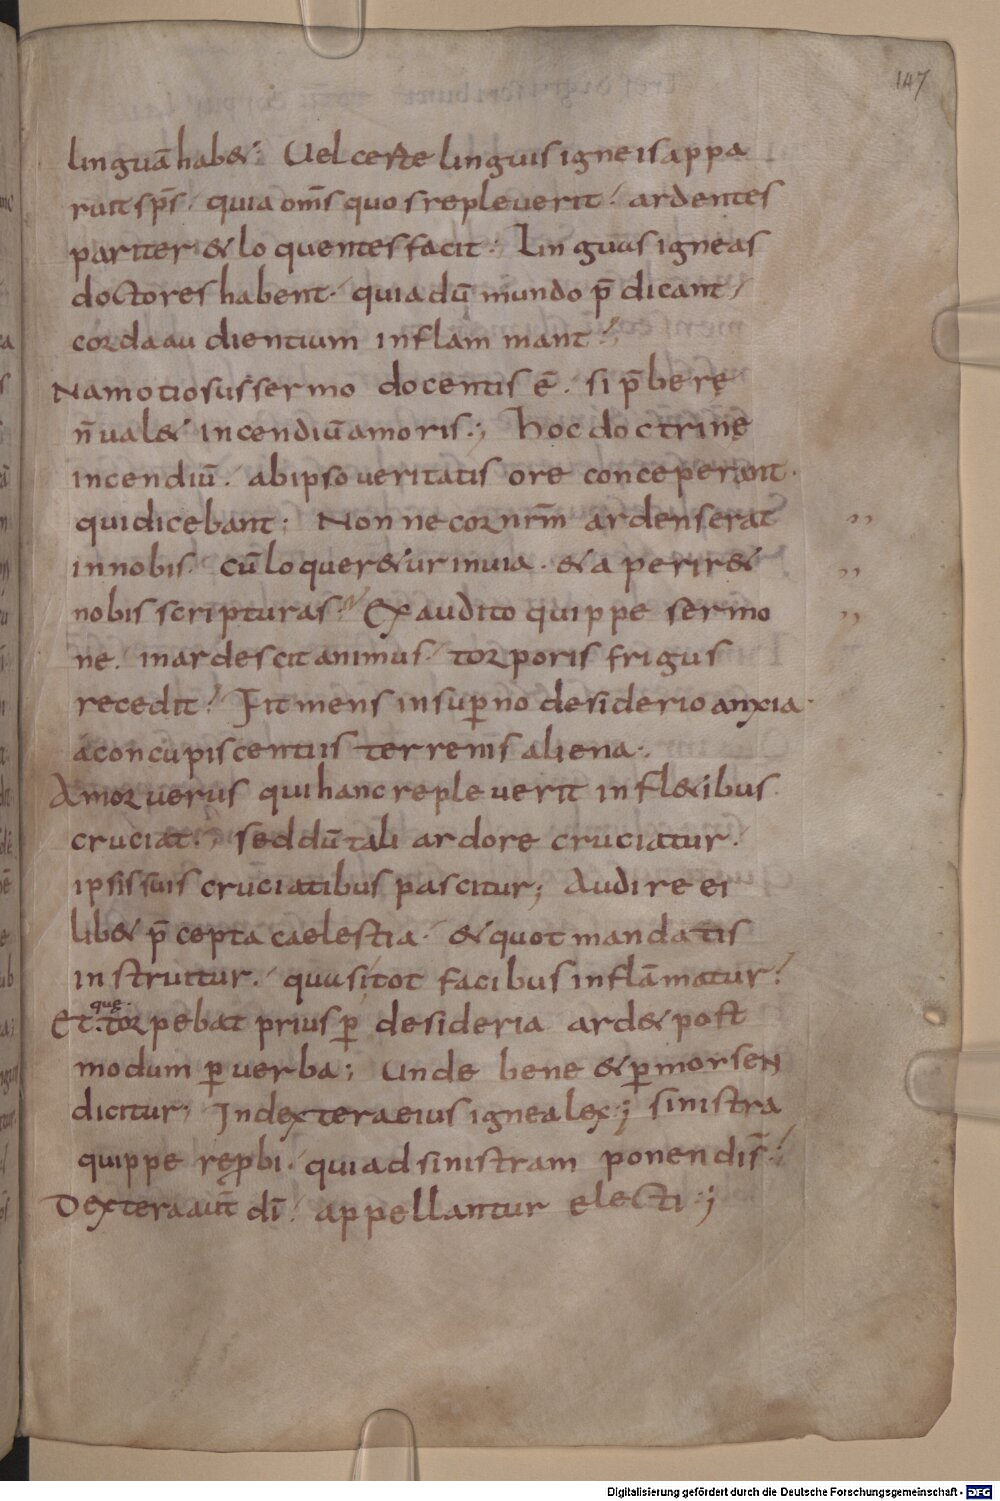 147
linguā hab&; Uel certe linguis igneis appa
ruit sp̄s. quia om̄s quos repleuerit. ardentes
pariter & loquentes facit. Linguas igneas
doctores habent. quia dū mundo p̄dicant,
corda audientium inflammant.
Nam otiosus sermo docentis ē. si p̄bere
n̄ ual& incendiū amoris.; hoc doctrinę
incendiū. ab ipso ueritatis ore conceperant.
qui dicebant; Nonne cor nrm̄ ardens erat ,,
in nobis. cū loquer&ur in uia. & aperir& ,,
nobis scripturas. Ex audito quippe sermo ,,
ne. inardescit animus. torporis frigus
recedit. Fit mens in sup̱no desiderio anxia.
a concupiscentiis terrenis aliena.
Amor uerus qui hanc repleuerit in fl&ibus
cruciat. sed dū tali ardore cruciatur.
ipsis suis cruciatibus pascitur; Audire ei
lib& p̄cepta caelestia. & quot mandatis
instruitur. quasi tot facibus inflāmatur.
que.
Et. torpebat prius p̱ desideria ard& post
modum p̱ uerba; Unde bene & p̱ morsen
dicitur; In dextera eius ignea lex.; sinistra
quippe rep̱bi. qui ad sinistram ponendis̄.
Dextera aut̄ dī. appellantur electi.;
Digitalisierung gefördert durch die Deutsche Forschungsgemeinschaft - DFG